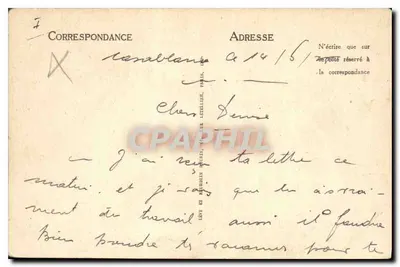 I
CORRESPONDANCE ADRESSE
N'écrire que sur
réservé à
la correspondance
Casablanca ce 14/5/
Chère Denise
CPAPHIL
J'ai reçu ta lettre ce
matin et je vois que tu as vrai-
ment du travail aussi il faudra
bien prendre tes vacances pour te